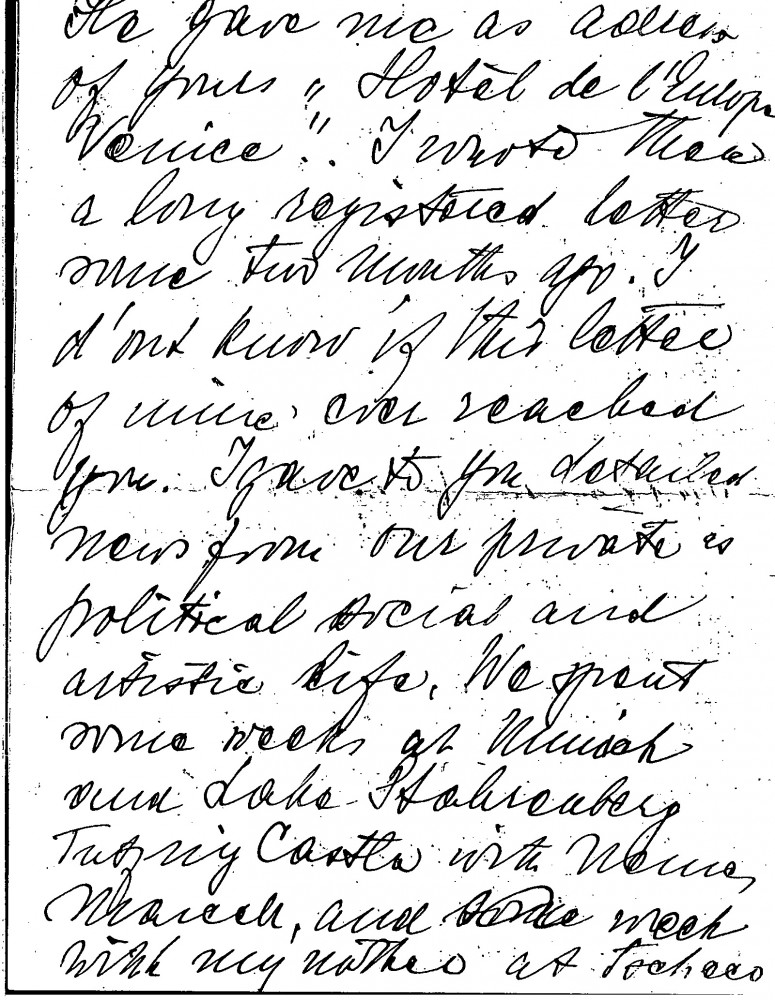 He gave me as adress
of yours „ Hotel de l'Europe
Venice ". I wrote there
a long registered letter
some two months ago. I
d'ont know if this letter
of mine ever reached
you. I gave to you detailed
news from our private
political social and
artistic life. We spent
some weeks at Munich
and Lake Stahrenberg
Tutzing Castle with
and some week
with my mother at